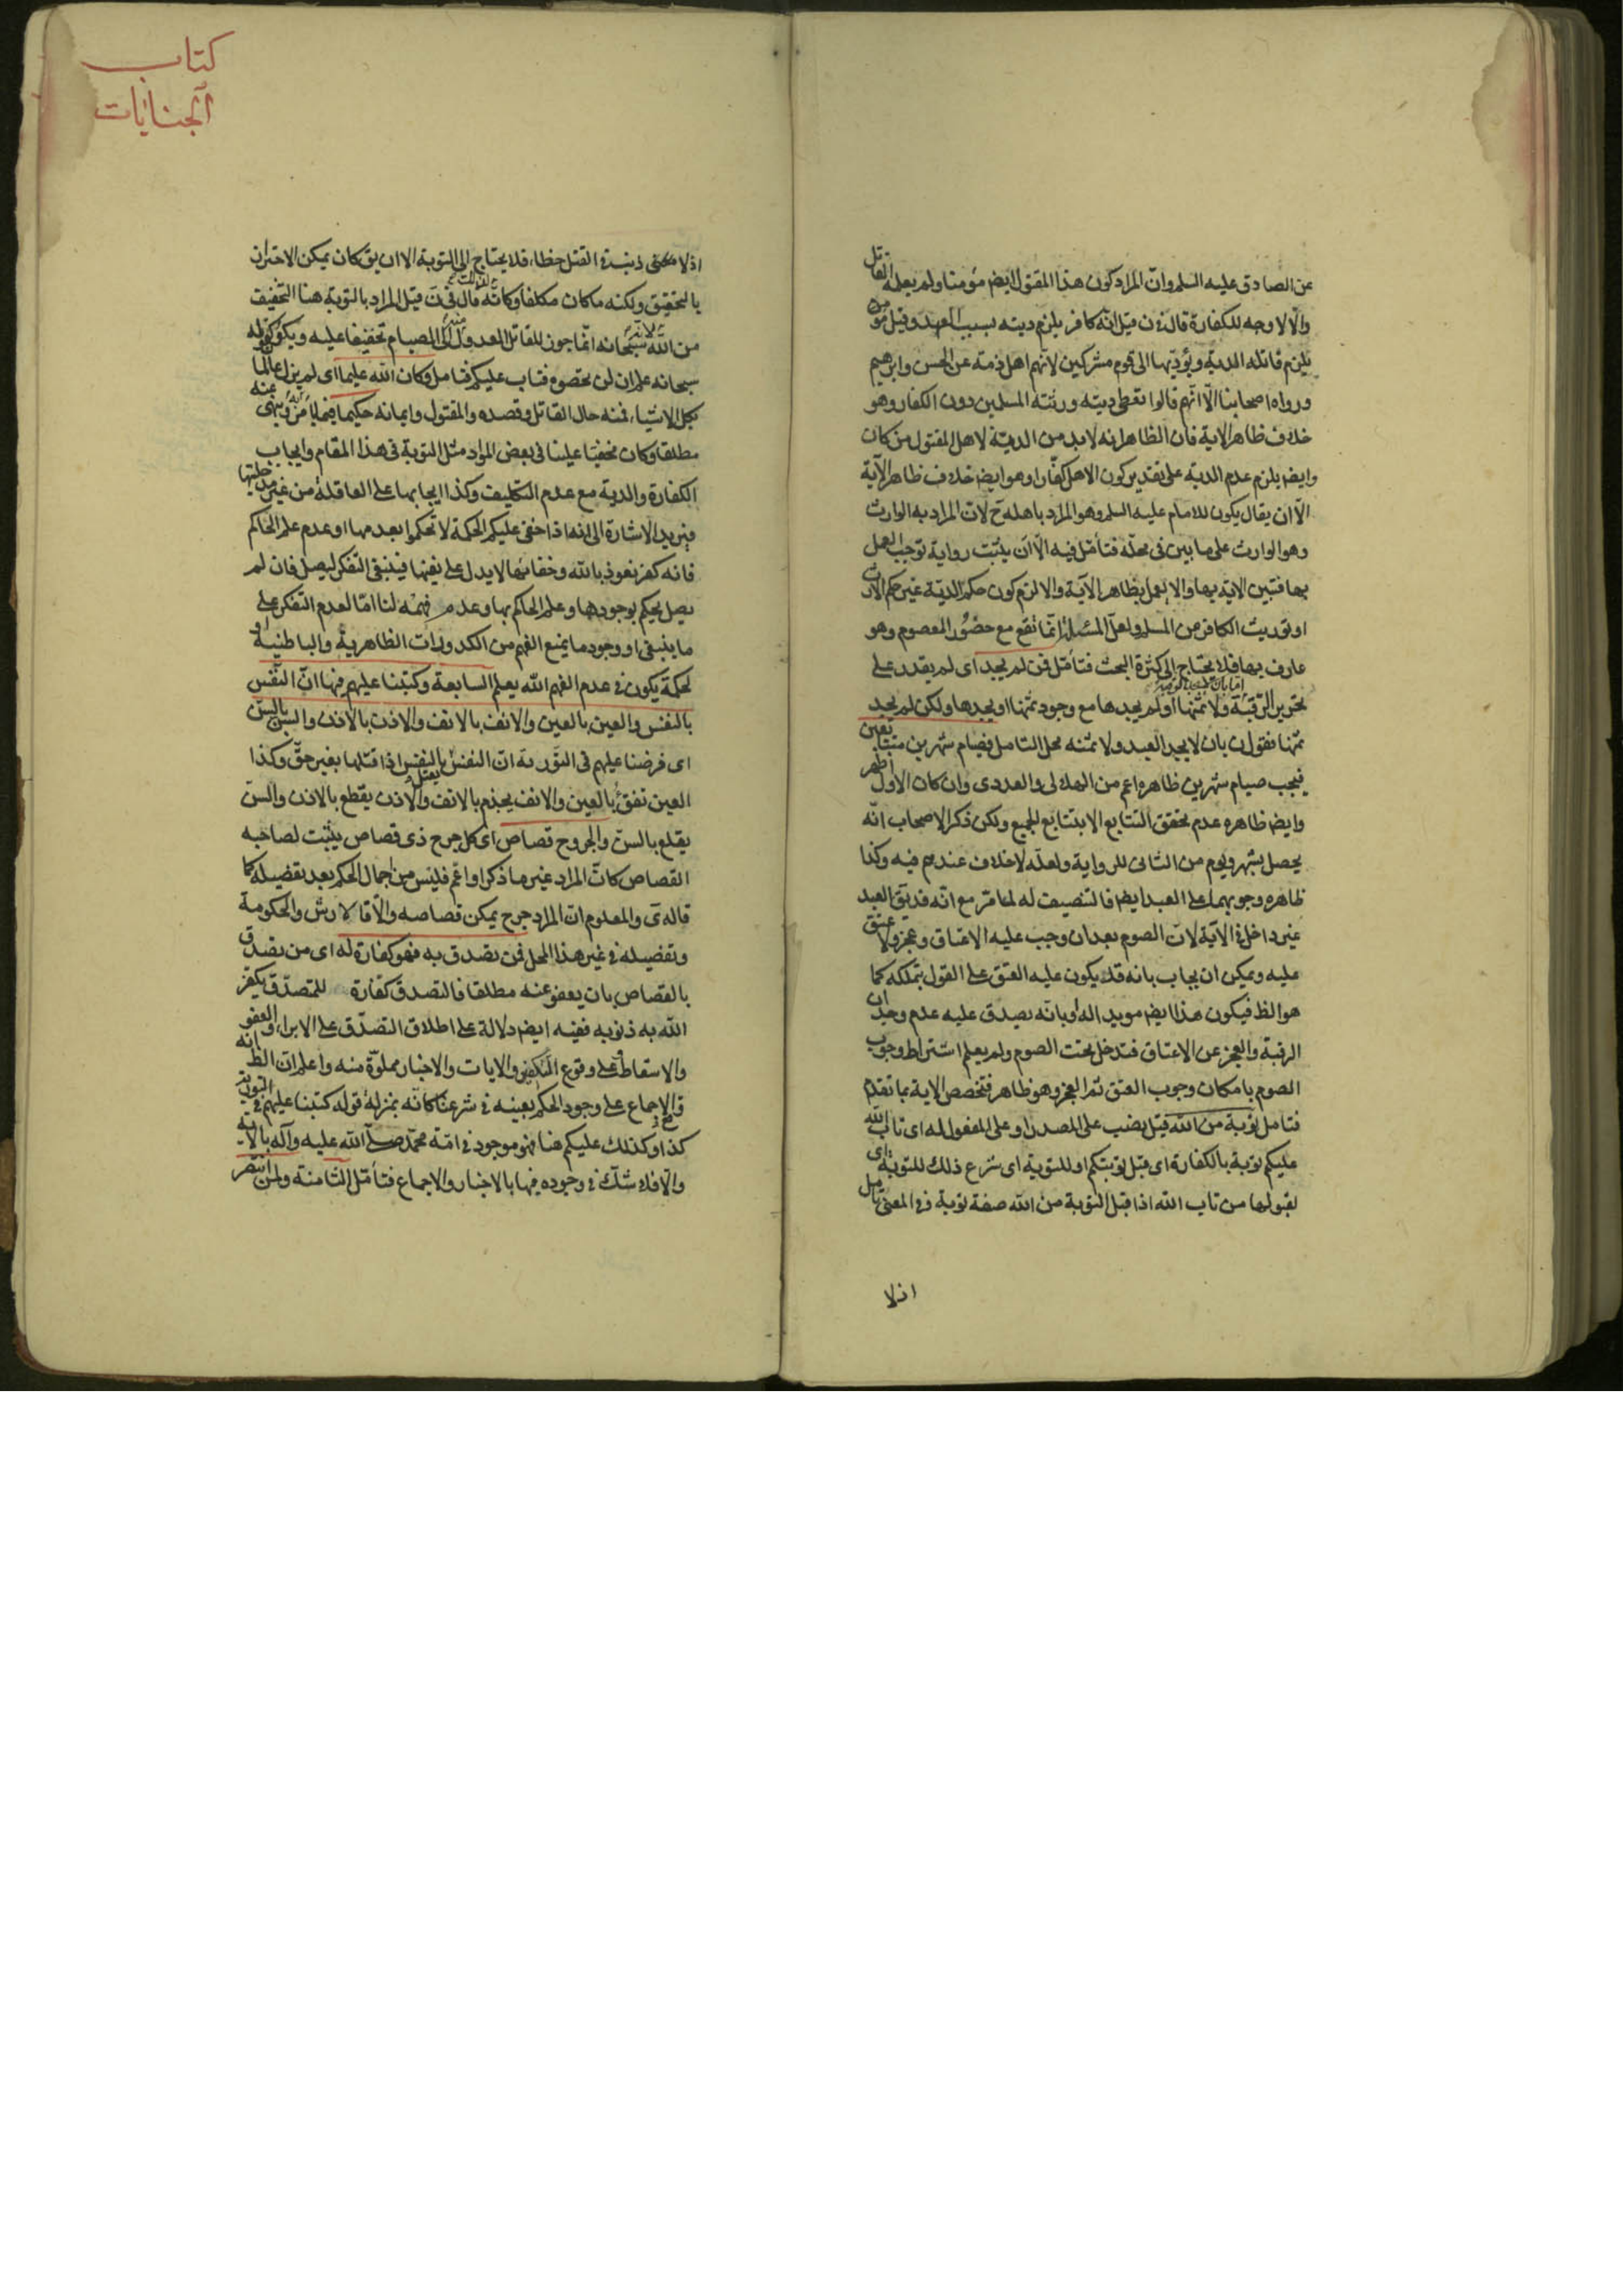 عن الصادق عليه السلم وان المراد كون هذا المقتول ايضا مؤمنا ولم يعلمه القاتل
والا لا وجه للكفارة قال في ن قيل انه كافر يلزم ديته بسبب العهد وقيل مؤمن
يلزم قاتله الدية ويؤديها الى قوم مشركين لانهم اهل ذمة عن الحسن وابرهيم
ورواه اصحابنا الا انهم قالوا تعطى ديته ورثته المسلمين دون الكفار وهو
خلاف ظاهر الاية فان الظاهر انه لابد من الدية لاهل المقتول من كان
وايض يلزم عدم الدية على تقدير كون الاهل كفارا وهو ايضا خلاف ظاهر الآية
الا ان يقال يكون للامام عليه السلم وهو المراد باهله ح لان المراد به الوارث
وهو الوارث على ما بين في محله فتأمل فيه الا ان يثبت رواية توجب العمل
بها فتبين الاية بها والا يعمل بظاهر الآية والا لزم كون حكم الدية غير حكم الارث
او توريث الكافر من المسلم ولعل المسئلة انما تقع مع حضور المعصوم وهو
عارف بها فلا يحتاج الى كثرة البحث فتأمل فمن لم يجد اى لم يقدر على
تحرير الرقبة ولا ثمنها او لم يجدها مع وجود ثمنها او يجدها ولكن لم يجد
ثمنها فقول ن بان لا يجد العبد ولا ثمنه محل التامل فصيام شهرين متتابعين
فيجب صيام شهرين ظاهره اعم من الهلالى والعددى وان كان الاول اظهر
وايض ظاهره عدم تحقق التتابع الا بتتابع الجميع ولكن ذكر الاصحاب انه
يحصل بشهر ويوم من الثانى للرواية ولعله لا خلاف عندهم فيه وكذا
ظاهره وجوبهما على العبد ايض فالتنصيف له لما مر مع انه قد يق العبد
غير داخل في الآية لان الصوم بعد ان وجب عليه الاعتاق وعجز ولا عتق
عليه ويمكن ان يجاب بانه قد يكون عليه العتق على القول بتملكه كما
هو الظ فيكون هذا ايض مويدا له او بانه يصدق عليه عدم وجدان
الرقبة والعجز عن الاعتاق فتدخل تحت الصوم ولم يعلم اشتراط وجوب
الصوم بامكان وجوب العتق ثم العجز وهو ظاهر فتخصص الاية بما تقدم
فتامل توبة من الله قيل نصب على المصدر او على المفعول له اى تاب الله
عليكم توبة بالكفارة اى قبل توبتكم او للتوبة اى شرع ذلك للتوبة اى
لقبولها من تاب الله اذا قبل التوبة من الله صفة توبة في المعنى تأمل
اذ لا
كتاب
الجنايات
اذ لا معنى ذنبه في القتل خطاء فلا يحتاج الى التوبة الا ان يق كان يمكن الاحتراز
بالتحقيق ولكنه ما كان مكلفا وكانه قال في ن قيل المراد بالتوبة هنا التخفيف
من الله لانه سبحانه انما جوز للقاتل العدول الى الصيام تخفيفا عليه ويكون كقوله
سبحانه علم ان لن تحصوه فتاب عليكم فتامل وكان الله عليما اى لم يزل عالما
بكل الاشياء فمنه حال القاتل وقصده والمقتول وايمانه حكيما فيما يأمر وينهى عنه
مطلقا وكان مخفيا علينا في بعض المواد مثل التوبة في هذا المقام وايجاب
الكفارة والدية مع عدم التكليف وكذا ايجابها على العاقلة من غير مدخليتها
فيريد الاشارة الى انه اذا خفى عليكم الحكمة لا تحكموا بعدمها او عدم علم الحاكم
فانه كفر نعوذ بالله وخفائها لا يدل على نفيها فينبغى التفكر ليصل فان لم
يصل يحكم بوجودها وعلم الحاكم بها وعدم فهمه لنا اما لعدم التفكر على
ما ينبغى او وجود ما يمنع الفهم من الكدورات الظاهرية والباطنية او
لحكمة يكون في عدم الفهم الله يعلم السابعة وكتبنا عليهم فيها ان النفس
بالنفس والعين بالعين والانف بالانف والاذن بالاذن والسن بالسن
اى فرضنا عليهم في التورية ان النفس يقتل بالنفس اذا قتلها بغير حق وكذا
العين تفقأ بالعين والانف يجذم بالانف والاذن يقطع بالاذن والسن
يقلع بالسن والجروح قصاص اى كل جرح ذى قصاص يثبت لصاحبه
القصاص كان المراد غير ما ذكر او اعم فليس من اجمال الحكم بعد تفضيله كما
قاله ى والمعلوم ان المراد جرح يمكن قصاصه والا فالارش والحكومة
وتفصيله في غير هذا المحل فمن تصدق به فهو كفارة له اى من تصدق
بالقصاص بان يعفو عنه مطلقا فالتصدق كفارة للمتصدق يكفر
الله به ذنوبه ففيه ايض دلالة على اطلاق التصدق على الابراء والعفو
والاسقاط وعلى وقوع التكفير والايات والاخبار مملوة منه واعلم ان الظ انه
والاجماع على وجود الحكم بعينه في شرعنا كانه بمنزلة قوله كتبنا عليهم في التورية
كذا وكذلك عليكم هنا فهو موجود في امة محمد صلى الله عليه وآله بالآية
والا فلا شك في وجوده فيها بالاخبار والاجماع فتأمل الثامنة ولمن انتصر